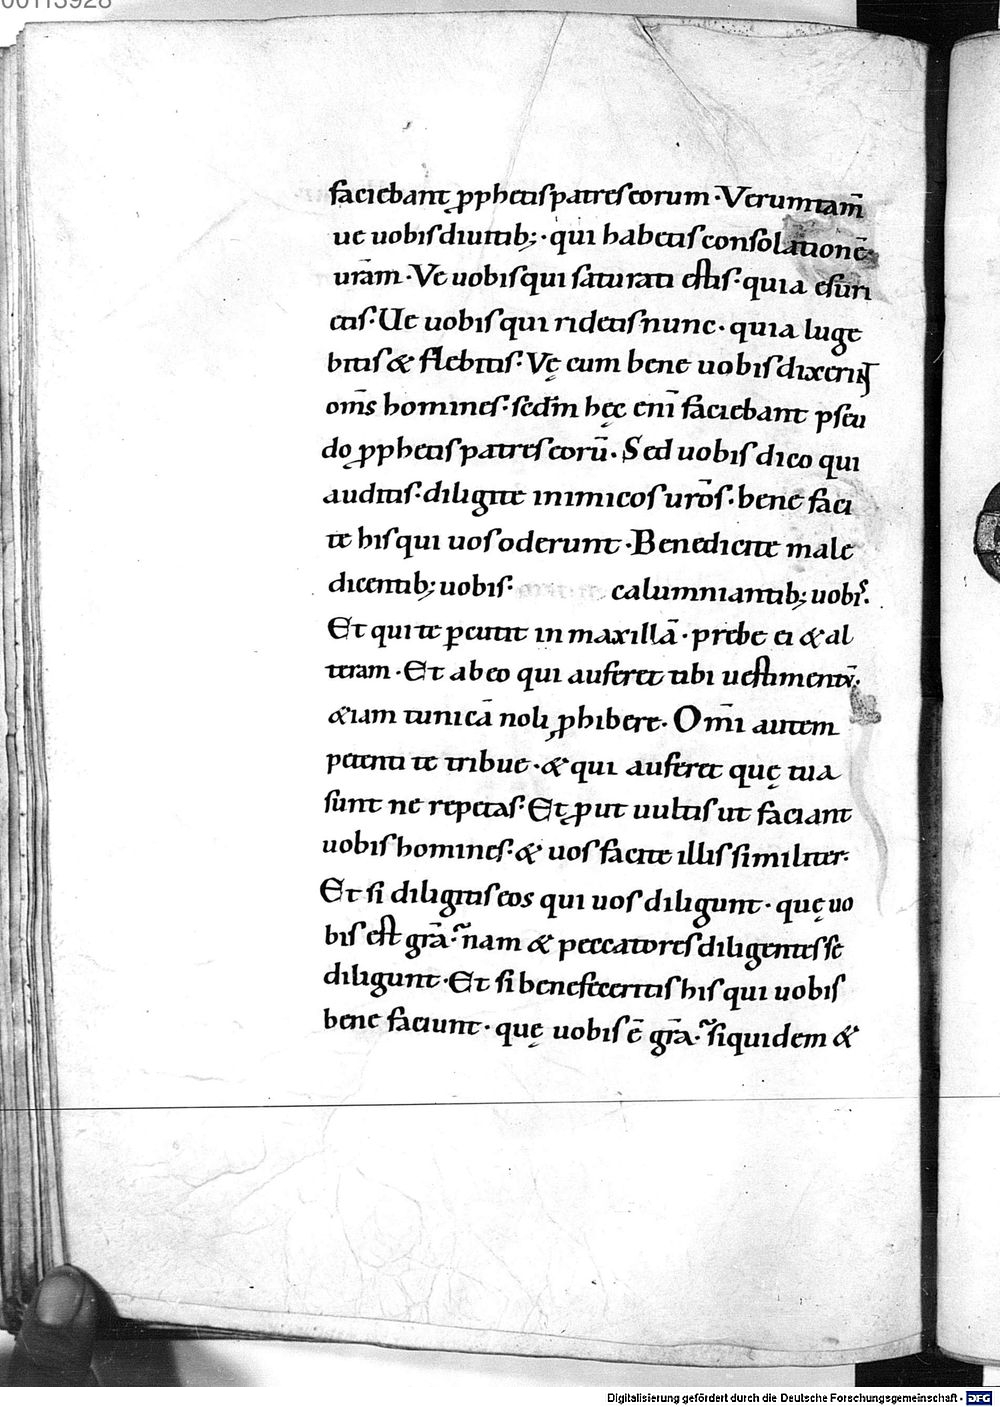 00113928
faciebant ꝓphetis patres eorum · Verumtam̄
ue uobis diuitib; · qui habetis consolationē
urām · Ve uobis qui saturati estis · quia esuri
etis · Ue uobis qui ridetis nunc · quia luge
bitis & flebitis · Vę cum bene uobis dixerint
om̄s homines · sedm̄ hęc enī faciebant pseu
do ꝓphetis patres eorū · Sed uobis dico qui
auditis · diligite inimicos urōs · bene faci
te his qui uos oderunt · Benedicite male
dicentib; uobis · calumniantib; uobis.
Et qui te ꝑcutit in maxillā · prebe ei & al
teram · Et ab eo qui auferet tibi uestimentū ·
&iam tunicā noli ꝓhibere · Om̄i autem
petenti te tribue · & qui auferet quę tua
sunt ne repetas · Et ꝓut uultis ut faciant
uobis homines · & uos facite illis similiter ·
Et si diligitis eos qui uos diligunt · quę uo
bis est grā · nam & peccatores diligentes se
diligunt · Et si benefeceritis his qui uobis
bene faciunt · quę uobis ē grā · siquidem &
Digitalisierung gefördert durch die Deutsche Forschungsgemeinschaft - DFG